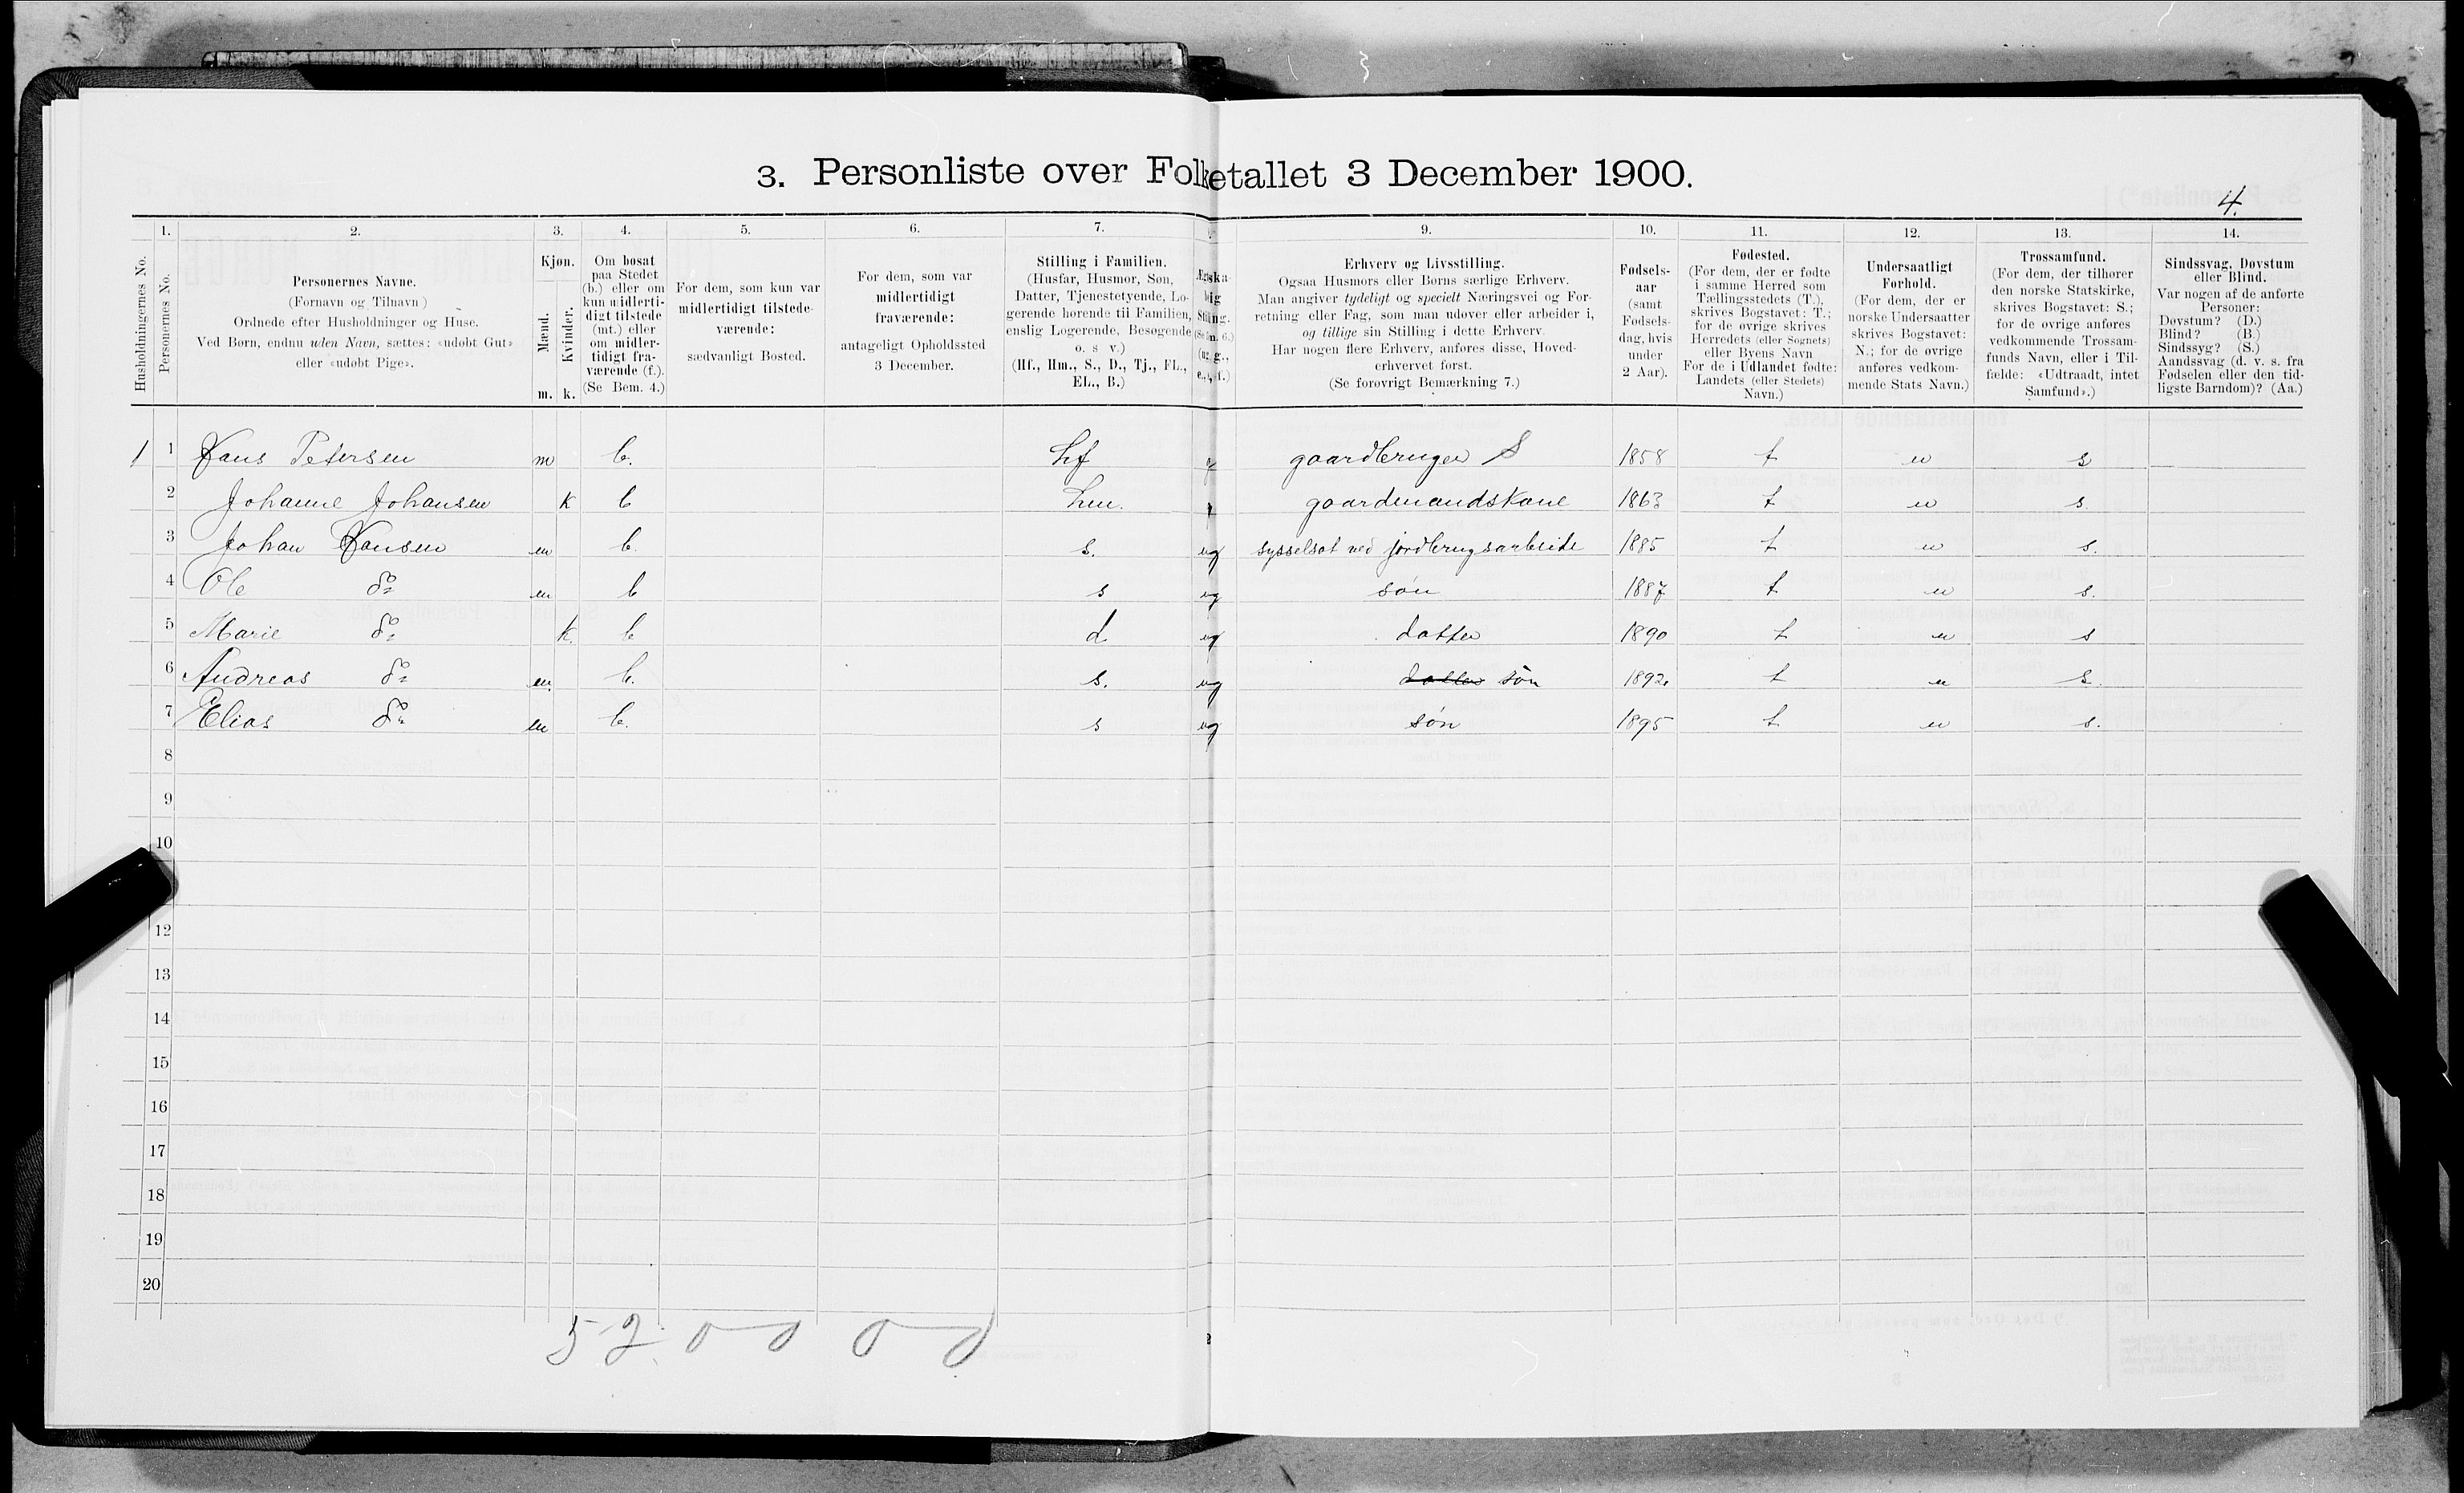 3. Personliste over Folketallet 3 December 1900.
4.
1. 2. 3. 4. 5. 6. 7. 9. 10. 11. 12. 13. 14.
Husholdningernes No.
Personernes No.
Personernes Navne.
(Fornavn og Tilnavn)
Ordnede efter Husholdninger og Huse.
Ved Børn, endnu uden Navn, sættes: «udøbt Gut»
eller «udøbt Pige».
Kjøn.
Mænd.
Kvinder.
m. k.
Om bosat
paa Stedet
(b.) eller om
kun midlerti-
digt tilstede
(mt.) eller
om midler-
tidigt fra-
værende (f.).
(Se Bem. 4.)
For dem, som kun var
midlertidigt tilstede-
værende:
sædvanligt Bosted.
For dem, som var
midlertidigt
fraværende:
antageligt Opholdssted
3 December.
Stilling i Familien.
(Husfar, Husmor, Søn,
Datter, Tjenestetyende, Lo-
gerende hørende til Familien,
enslig Logerende, Besøgende
o. s. v.)
(Hf., Hm., S., D., Tj., FL.,
EL., B.)
Erhverv og Livsstilling.
Ogsaa Husmors eller Børns særlige Erhverv.
Man angiver tydeligt og specielt Næringsvei og For-
retning eller Fag, som man udøver eller arbeider i,
og tillige sin Stilling i dette Erhverv.
Har nogen flere Erhverv, anføres disse, Hoved-
erhvervet først.
(Se forøvrigt Bemærkning 7.)
Fødsels-
aar
(samt
Fødsels-
dag, hvis
under
2 Aar).
Fødested.
(For dem, der er fødte
i samme Herred som
Tællingsstedets (T.),
skrives Bogstavet: T.;
for de øvrige skrives
Herredets (eller Sognets)
eller Byens Navn
For de i Udlandet fødte:
Landets (eller Stedets)
Navn.)
Undersaatligt
Forhold.
(For dem, der er
norske Undersaatter
skrives Bogstavet:
N.; for de øvrige
anføres vedkom-
mende Stats Navn.)
Trossamfund.
(For dem, der tilhører
den norske Statskirke,
skrives Bogstavet: S.;
for de øvrige anføres
vedkommende Trossam-
funds Navn, eller i Til-
fælde: «Udtraadt, intet
Samfund».)
Sindssvag, Døvstum
eller Blind.
Var nogen af de anførte
Personer:
Døvstum? (D.)
Blind? (B.)
Sindssyg? (S.)
Aandssvag (d. v. s. fra
Fødselen eller den tid-
ligste Barndom)? (Aa.)
1 1 Hans Petersen m b. hf g gaardbruger S 1858 t n s
2 Johanne Johansen k b hm. gaardmandskone 1863 t n s.
3 Johan Hansen m b. s. ug sysselsat ved jordbrugsarbeide 1885 t n s.
4 Ole do m b s ug søn 1887 t n s.
5 Marie do k. b d ug datter 1890 t n s
6 Andreas do m. b. s. ug datter søn 1892. t n s.
7 Elias do m b. s ug søn 1895 t n s.
8
9
10
12
13
14
15
16
17
18
19
20
52 0 0 0 0